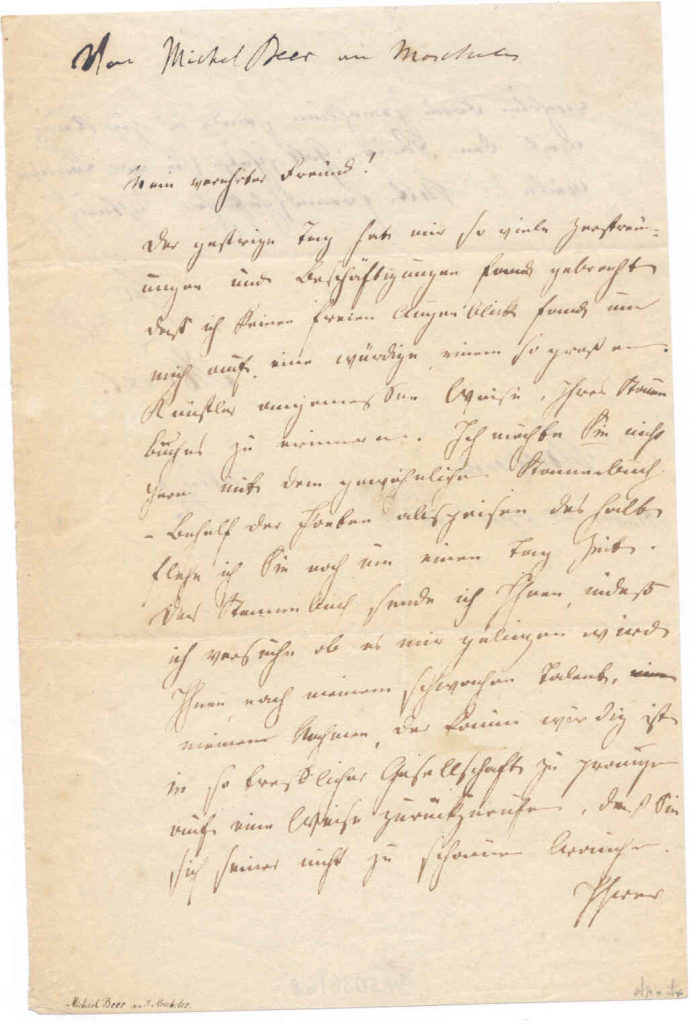 Von Michel Beer an Moscheles
Mein verehrter Freund!
Der gestrige Tag hat mir so viele Zerstreu-
ungen und Beschäftigungen gebracht
daß ich keinen freien Augenblick fand um
mich auf eine würdige, einem so großen
Künstler angemessen Weise, Ihres Stamm
buches zu erinnern. Ich möchte Sie nicht
gern mit dem gewöhnlichen Stammbuch
- Behelf der abspeisen deshalb
flehe ich Sie noch um einen Tag Zeit.
Das Stammbuch sende ich Ihnen, indeß
ich versuche ob es mir gelingen wird
Ihnen, nach meinem schwachen Talent,
meinem Nahmen, der kaum würdig ist
in so trefflicher Gesellschaft zu prangen
auf eine Weise zurückzurufen, daß Sie
sich seiner nicht zu schämen brauchen.
Ihrer
Michael Beer an Moscheles.